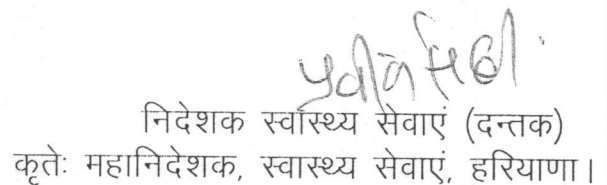 प्रवीन सेठी
निदेशक स्वास्थ्य सेवाएं (दन्तक)
कृतेः महानिदेशक, स्वास्थ्य सेवाएं, हरियाणा।